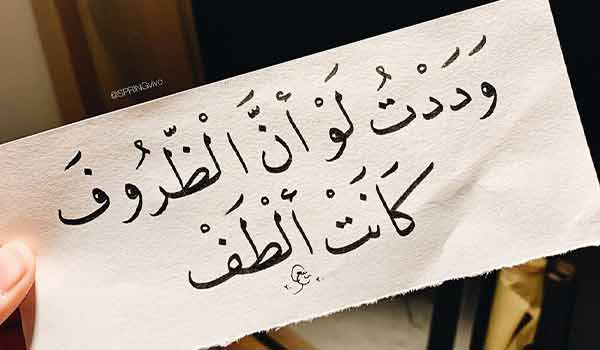 @SPRINGvivo
وَدَدْتُ لَوْ أنَّ الْظّرُوفَ
كَانَتْ ألْطَفْ